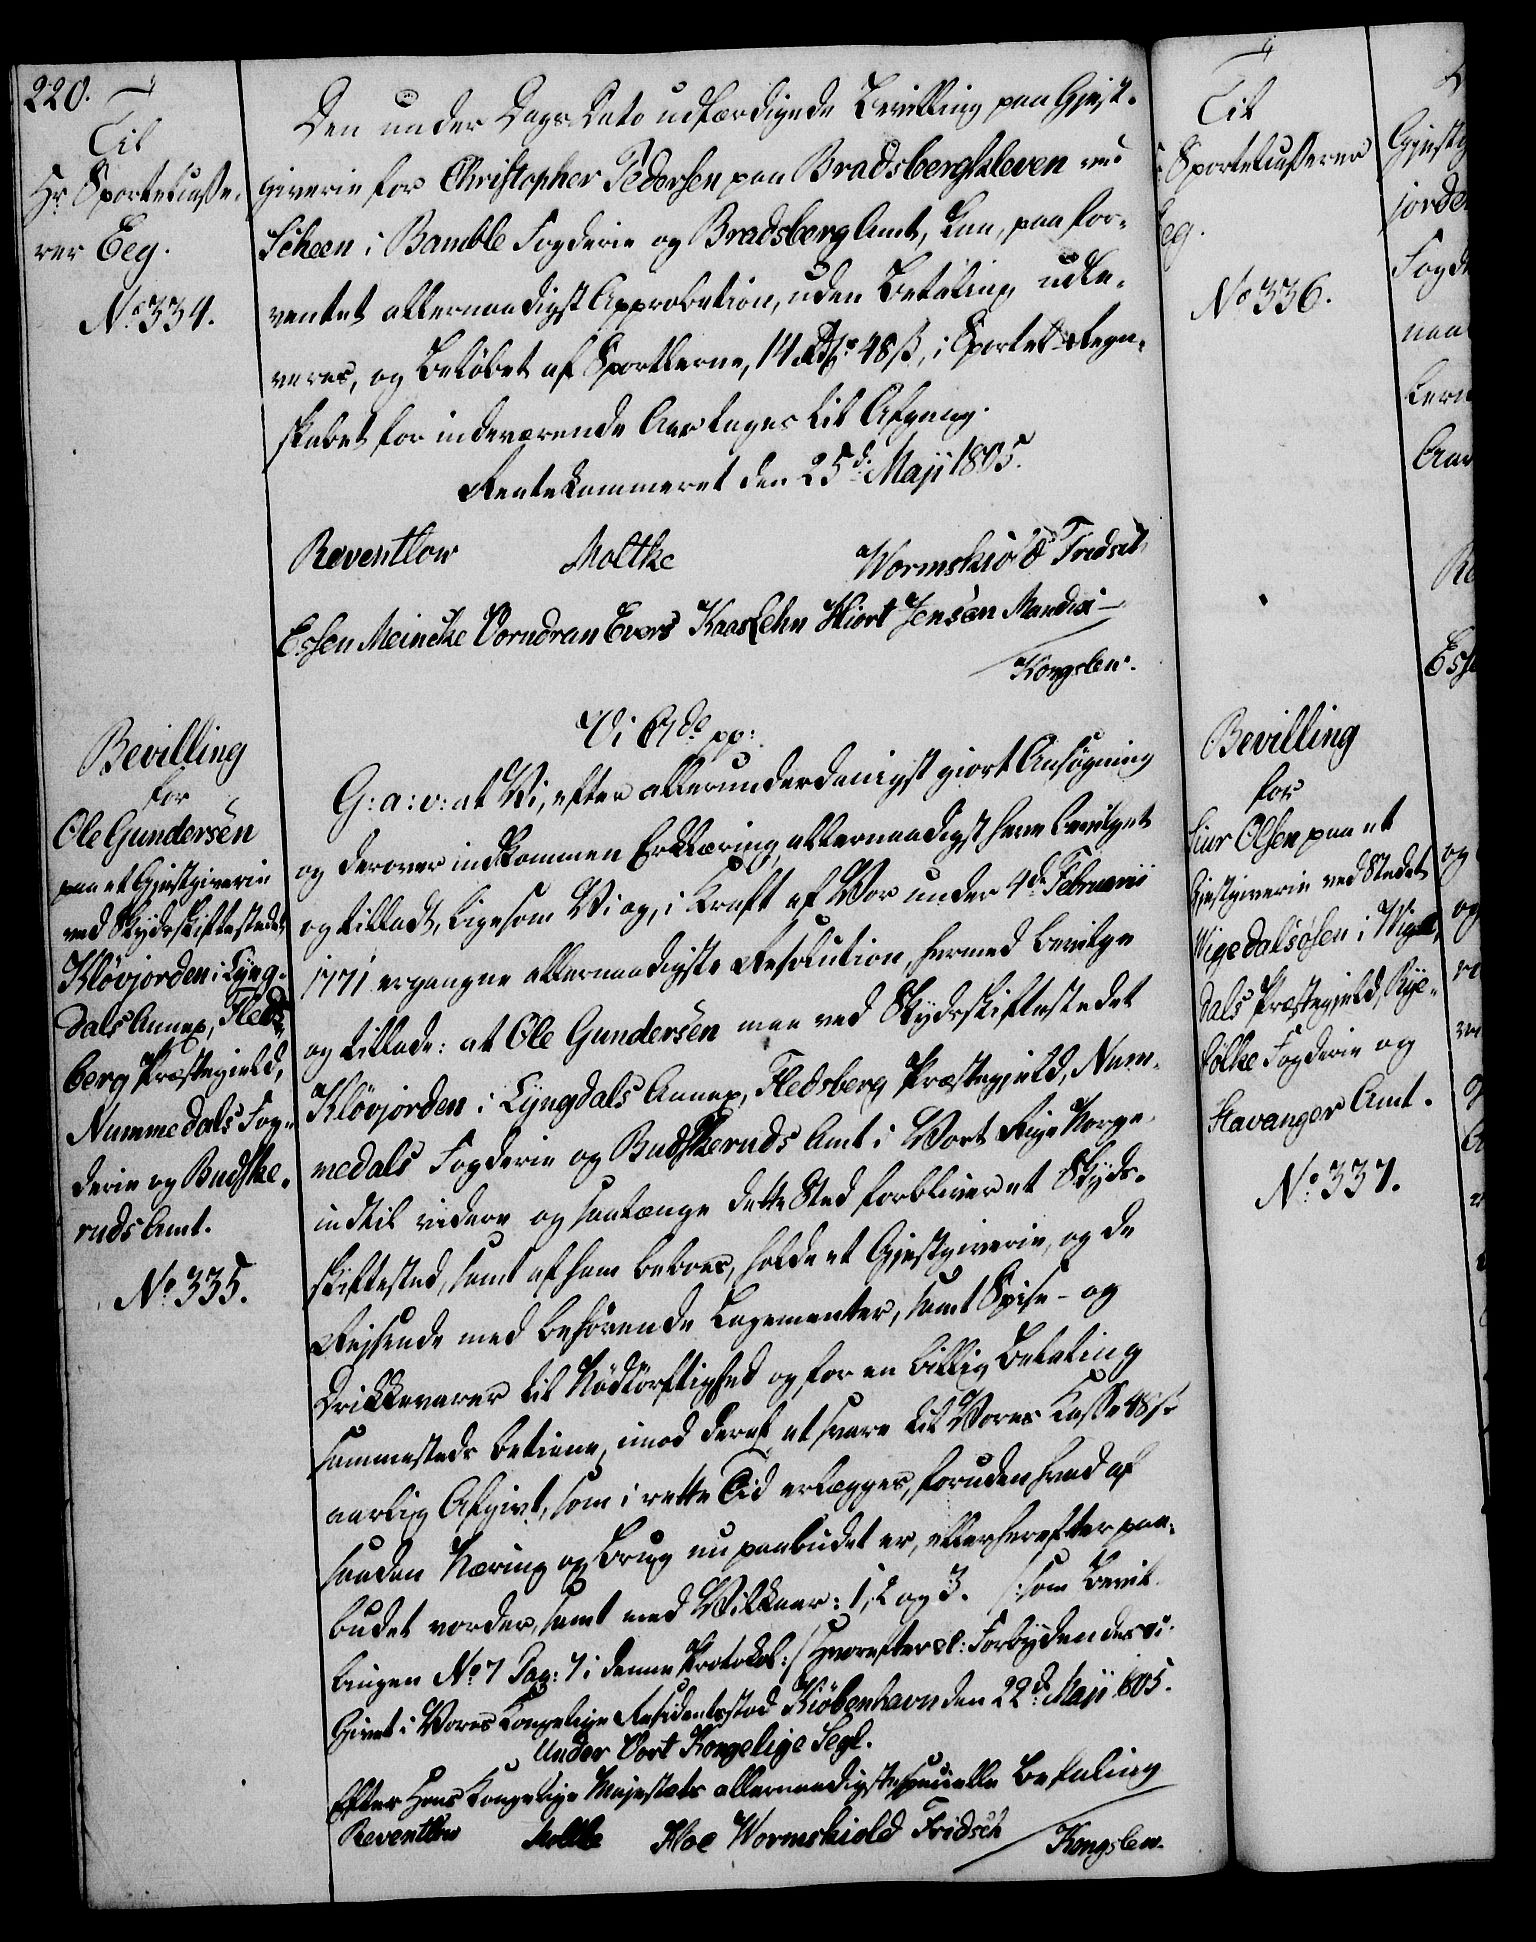 220.
Til
Hr. Sportelcasse-
rer Eeg.
No 334.
Den under Dags Dato udfærdigede Bevilling paa Gjest-
giverie for Christopher Pedersen paa Bradsbergkleven ved
Scheen i Bamble Fogderie og Bradsberg Amt, kan, paa for-
ventet allernaadigst Approbation, uden Betaling udle-
veres, og Beløbet af Sportlerne, 14 Rdlr 48 ß, i Sportel-Regn-
skabet for indeværende Aar tages til Afgang.
Rentekammeret den 25d. Maji 1805.
Reventlow Moltke Wormskiold Fridsch
Essen Meincke Vorndran Evers Kaas Lehn Hiort Jensen Mandix
Kongslew.
Bevilling
for
Ole Gundersen
paa et Gjestgiverie
ved Skydsskiftestedet
Kløvjorden i Lyng-
dals Annex, Fleds-
berg Præstegield,
Nummedals Fog-
derie og Budske-
ruds Amt.
No 335.
Vi C 7de pp:
G: a: v: at Vi, efter allerunderdanigst giort Ansøgning
og derover indkommen Erklæring, allernaadigst have bevilget
og tilladt, ligesom Vi og, i Kraft af Vor under 4de Februarii
1771 ergangne allernaadigste Resolution, hermed bevilge
og tillade: at Ole Gundersen maa ved Skydsskiftestedet
Kløvjorden i Lyngdals Annex, Fledsberg Præstegjeld, Num-
medals Fogderie og Budskeruds Amt i Vort Rige Norge,
indtil videre og saalænge dette Sted forbliver et Skyds-
skiftested, samt af ham beboes, holde et Gjestgiverie, og de
Reisende med behørende Logementer, samt Spise- og
Drikkevarer til Nødtørftighed og for en billig Betaling
sammesteds betiene, imod deraf at svare til Vores Kasse 48 ß
aarlig Afgivt, som i rette Tid erlægges, foruden hvad af
saadan Næring og Brug nu paabudet er, eller herefter paa-
budet vorder, samt med Vilkaar: 1, 2 og 3. /: som Bevil-
lingen No 7 Pag: 7 i denne Protokol :/ Hvorefter &: Forbydendes &:
Givet i Vores Kongelige Residentsstad Kiøbenhavn den 22d. Maji 1805.
Under Vort Kongelige Segl.
Efter Hans Kongelige Majestæts allernaadigste specielle Befaling
Reventlow Moltke Hoe Wormskiold Fridsch
Kongslew.
Til
Sportelcasserer
Eeg.
No 336.
Bevilling
for
Siur Olsen paa et
Gjestgiverie ved Stedet
Wigedalsøsen i Wige-
dals Præstegjeld, Rye-
fölke Fogderie og
Stavanger Amt.
No 337.